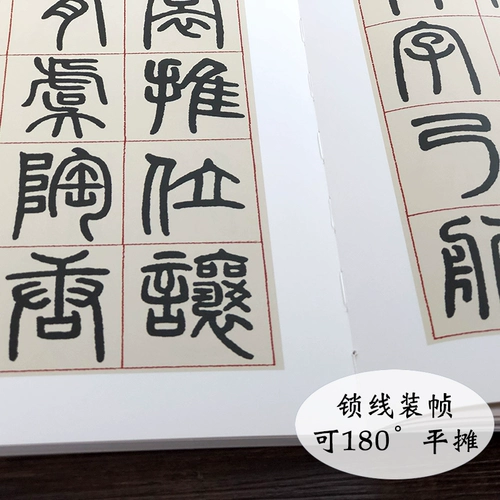 字乃服
裳推位讓
有虞陶唐
锁线装帧
可180°平摊